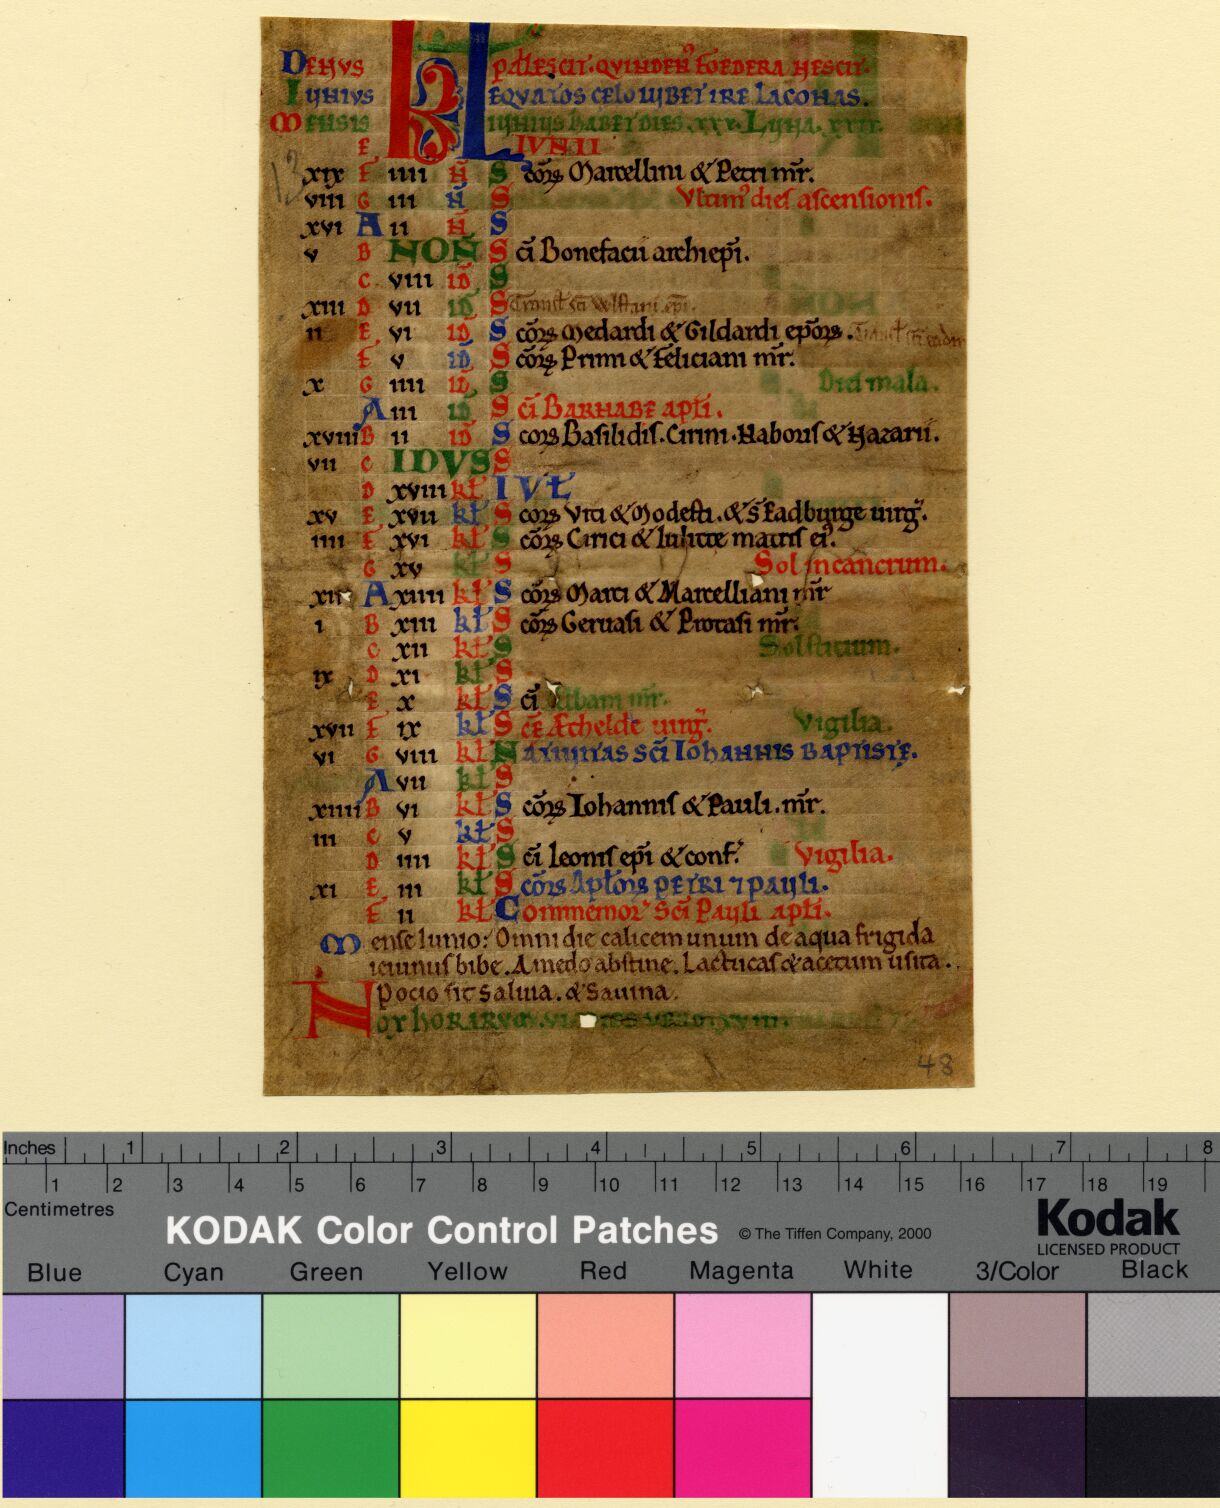 DENVS KL pallESCIT. QVINDEN' FOEDERA NESCIT.
IUNIVS EQVATOS CELO UIBET IRE LACONAS.
MENSIS IUNIUS hABET DIES. XXX. LUNA. XXIX.
E IVNII
xix F iiii N S cõꝝ Marcellini & Petri mr̄.
viii G iii N S Vltim' dies ascensionis.
xvi A ii N S
v B NON S c̄i Bonefacii archiep̄i.
C viii ID S
xiii D vii ID S
ii E vi ID S cõꝝ Medardi & Gildardi ep̄oꝝ.
F v ID S cõꝝ Primi & Feliciani mr̄.
x G iiii ID S Dies mala.
A iii ID S c̄i BARNABE apłi.
xviii B ii ID S coꝝ Basilidis. Cirini. Naboris & Nazarii.
vii C IDVS S
D xviii kł IVŁ
xv E xvii kł S coꝝ Viti & Modesti. & s̄ Eadburge uirg̃.
iiii F xvi kł S cõꝝ Cirici & Iulitte matris ei'.
G xv kł S Sol in cancrum.
xii A xiiii kł S cõꝝ Marci & Marcelliani mr̄
i B xiii kł S cõꝝ Geruasi & Protasi mr̄.
C xii kł S Solsticium.
ix D xi kł S
E x kł S c̄i Albani mr̄.
xvii F ix kł S cē Ætheldе uirg̃. Vigilia.
vi G viii kł NATIUITAS Sc̄i IOHANNIS BAPTISTE.
A vii kł S
xiiii B vi kł S cõꝝ Iohannis & Pauli. mr̄.
iii C v kł S
D iiii kł S c̄i Leonis ep̄i & conf. Vigilia.
xi E iii kł S cõꝝ Apłoꝝ PETRI ⁊ PAULI.
F ii kł Commemor' Sc̄i Pauli apłi.
Mense Iunio: Omni die calicem unum de aqua frigida
ieiunus bibe. A medo abstine. Lactucas & acetum usita.
Pocio sit saluia. & sauina.
NOX hORARVM. VI
48
Inches 1 2 3 4 5 6 7 8
1 2 3 4 5 6 7 8 9 10 11 12 13 14 15 16 17 18 19
Centimetres
KODAK Color Control Patches © The Tiffen Company, 2000 Kodak
LICENSED PRODUCT
Blue Cyan Green Yellow Red Magenta White 3/Color Black